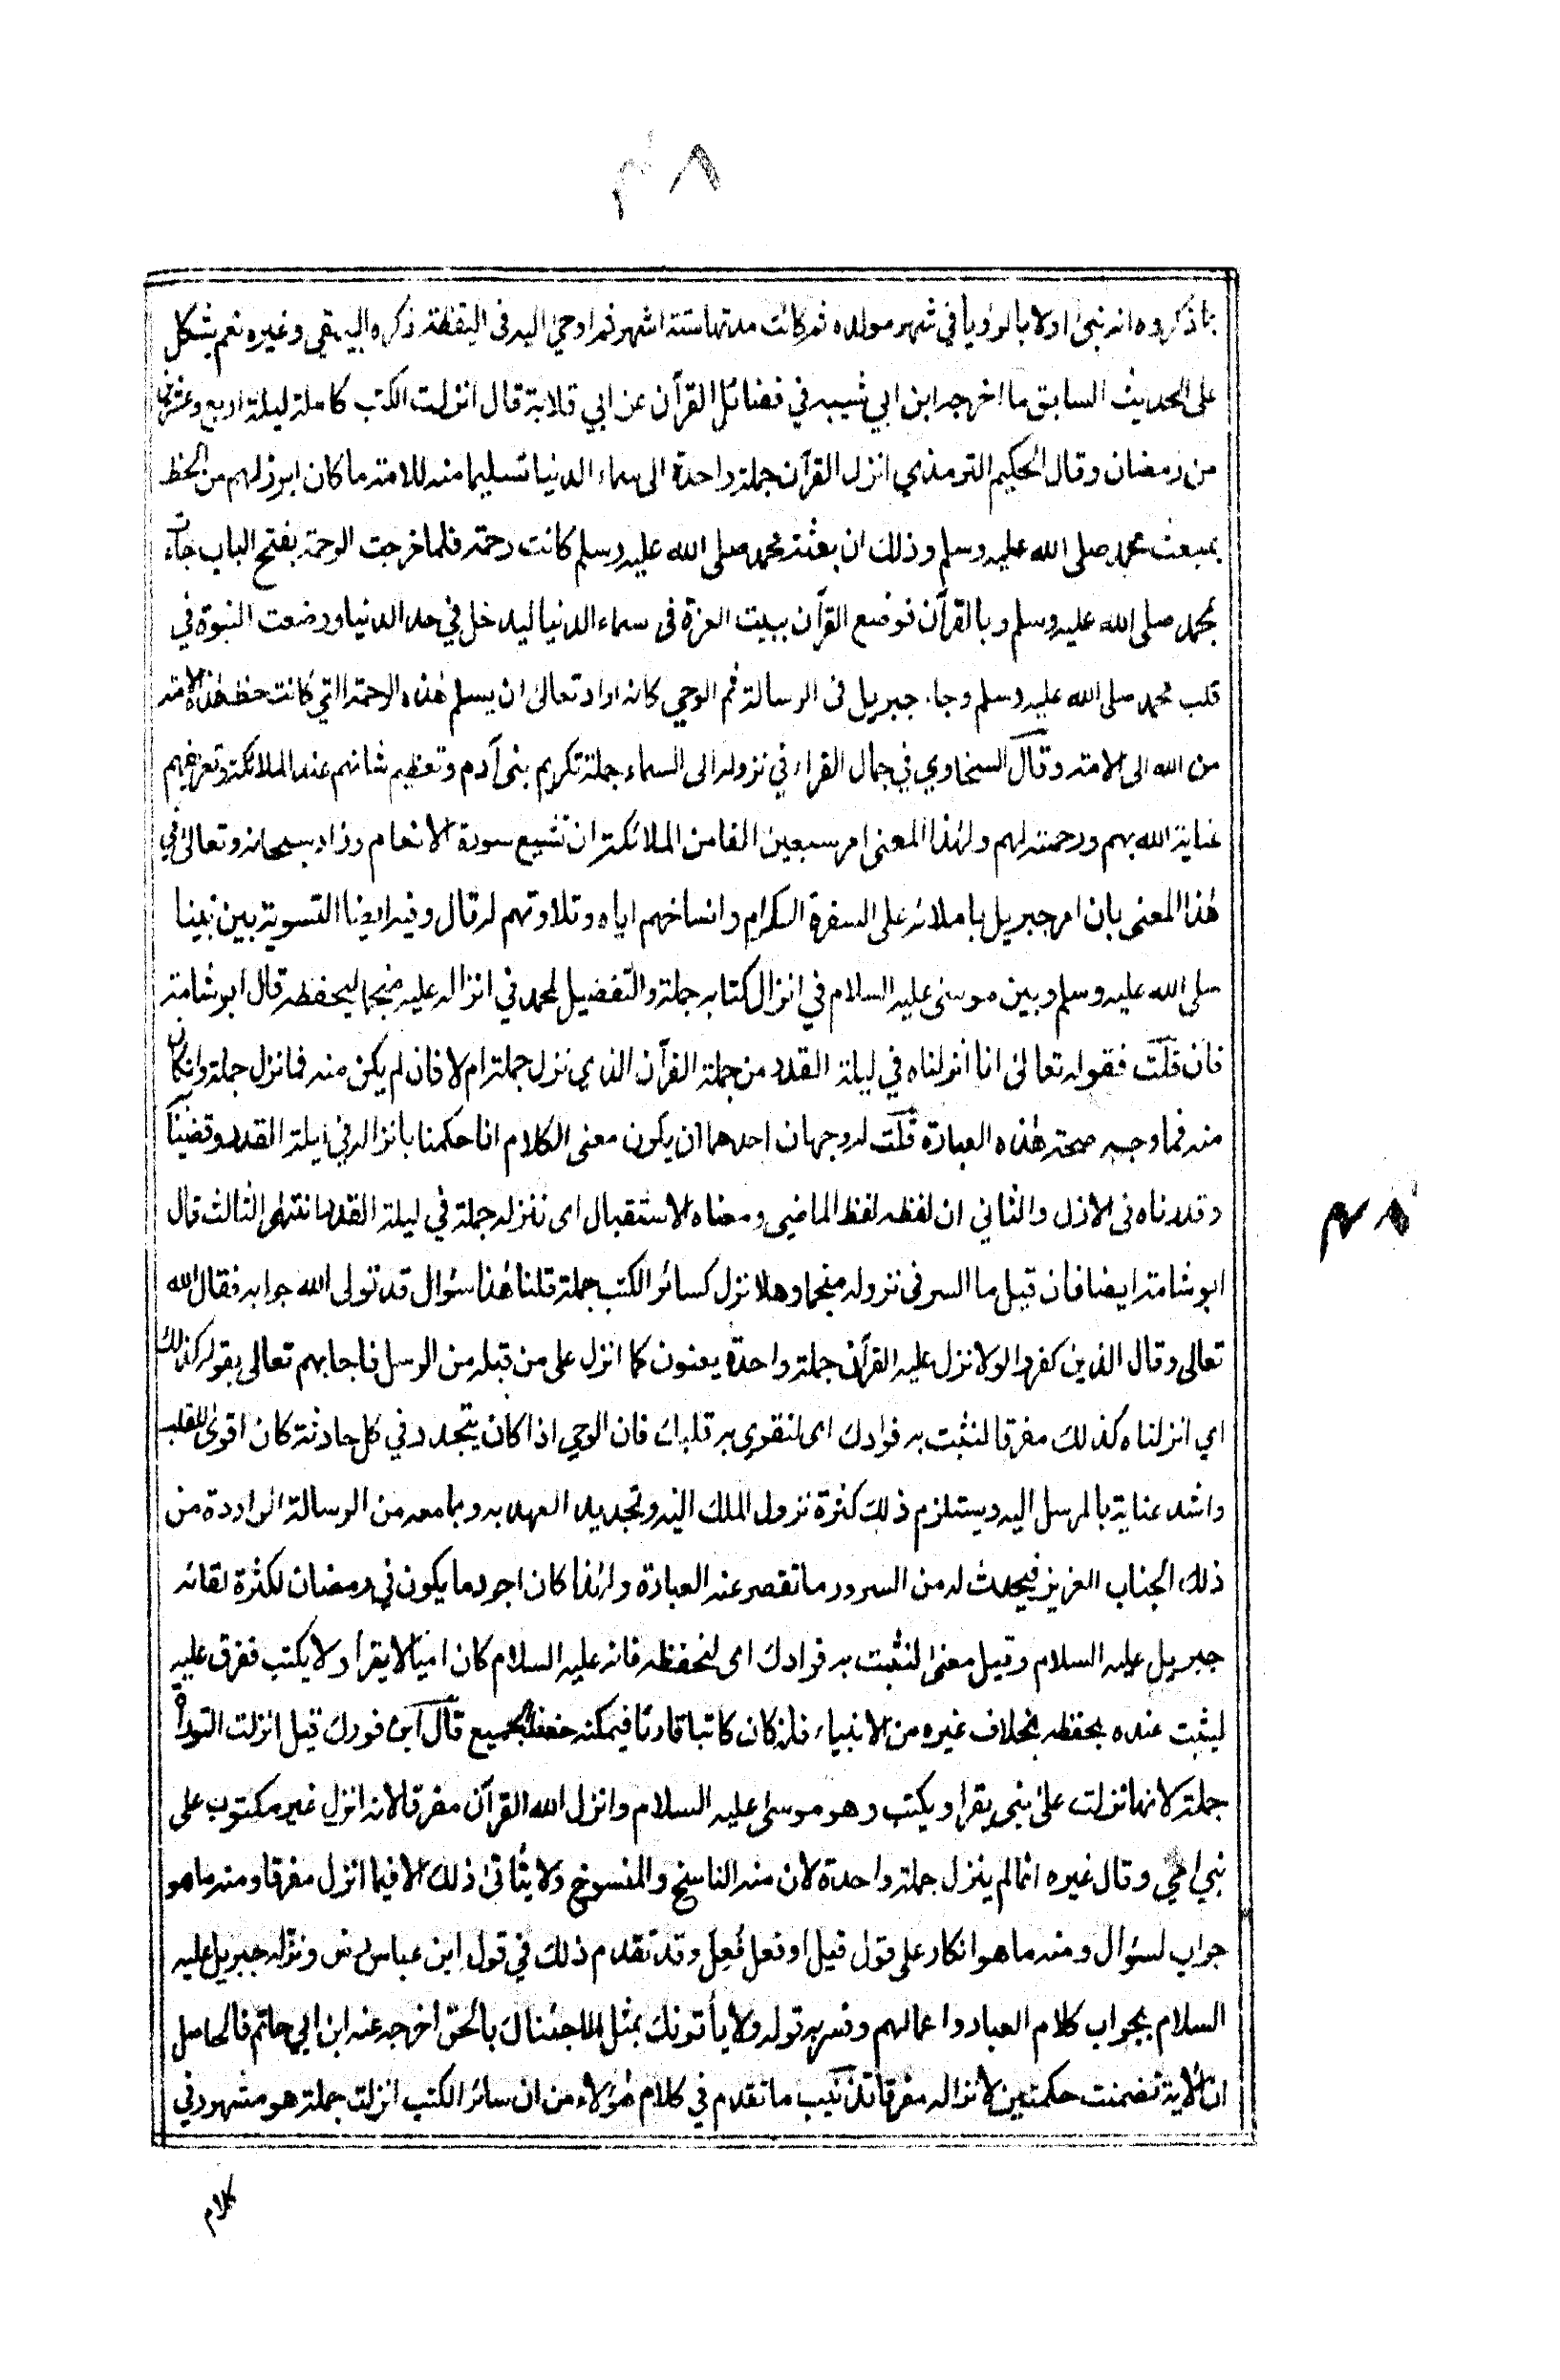 ٣٨
بما ذكروه انه نبئ اولا بالرؤيا في شهر مولده ثم كانت مدتها ستة اشهر ثم اوحي اليه فى اليقظة ذكره البيهقي وغيره نعم يشكل
على الحديث السابق ما اخرجه ابن ابي شيبه في فضائل القرآن عن ابي قلابة قال انزلت الكتب كاملة ليلة اربع وعشرين
من رمضان وقال الحكيم الترمذي انزل القرآن جملة واحدة الى سماء الدنيا تسليما منه للامة ما كان ابرز لهم من الحظ
بمبعث محمد صلى الله عليه وسلم وذلك ان بعثة محمد صلى الله عليه وسلم كانت رحمة فلما خرجت الرحمة بفتح الباب جاءت
بمحمد صلى الله عليه وسلم وبالقرآن فوضع القرآن ببيت العزة فى سماء الدنيا ليدخل في حد الدنيا ووضعت النبوة في
قلب محمد صلى الله عليه وسلم وجاء جبريل فى الرسالة ثم الوحي كانه اراد تعالى ان يسلم هذه الرحمة التي كانت حظ هذه الامة
من الله الى الامة وقال السخاوي في جمال القراء في نزوله الى السماء جملة تكريم بنى آدم وتعظيم شانهم عند الملائكة وتعريفهم
عناية الله بهم ورحمته لهم ولهذا المعنى امر سبعين الفا من الملائكة ان تشيع سورة الانعام وزاد سبحانه وتعالى في
هذا المعنى بان امر جبريل باملائه على السفرة الكرام وانساخهم اياه وتلاوتهم له قال وفيه ايضا التسوية بين نبينا
صلى الله عليه وسلم وبين موسى عليه السلام في انزال كتابه جملة والتفضيل لمحمد في انزاله عليه منجما ليحفظه قال ابو شامة
فان قلت فقوله تعالى انا انزلناه في ليلة القدر من جملة القرآن الذي نزل جملة ام لا فان لم يكن منه فما نزل جملة وان كان
منه فما وجه صحة هذه العبارة قلت له وجهان احدهما ان يكون معنى الكلام انا حكمنا بانزاله في ليلة القدر وقضينا
وقدرناه فى الازل والثاني ان لفظه لفظ الماضي ومعناه الاستقبال اى ننزله جملة في ليلة القدر انتهى الثالث قال
ابو شامة ايضا فان قيل ما السر فى نزوله منجما وهلا نزل كسائر الكتب جملة قلنا هذا سؤال قد تولى الله جوابه فقال الله
تعالى وقال الذين كفروا لولا نزل عليه القرآن جملة واحدة يعنون كما انزل على من قبله من الرسل فاجابهم تعالى بقوله كذلك
اي انزلناه كذلك مفرقا لنثبت به فوادك اى لنقوي به قلبك فان الوحي اذا كان يتجدد في كل حادثة كان اقوى للقلب
واشد عناية بالمرسل اليه ويستلزم ذلك كثرة نزول الملك اليه وتجديد العهد به وبما معه من الرسالة الواردة من
ذلك الجناب العزيز فيحدث له من السرور ما تقصر عنه العبارة ولهذا كان اجود ما يكون في رمضان لكثرة لقائه
جبريل عليه السلام وقيل معنى لنثبت به فوادك اى لنحفظه فانه عليه السلام كان اميا لا يقرأ ولا يكتب ففرق عليه
ليثبت عنده بحفظه بخلاف غيره من الانبياء فانه كان كاتبا قارئا فيمكنه حفظ الجميع قال ابن فورك قيل انزلت التوراة
جملة لانها نزلت على نبي يقرا ويكتب وهو موسى عليه السلام وانزل الله القرآن مفرقا لانه انزل غير مكتوب على
نبي امي وقال غيره انما لم ينزل جملة واحدة لان منه الناسخ والمنسوخ ولا يتاتى ذلك الا فيما انزل مفرقا ومنه ما هو
جواب لسؤال ومنه ما هو انكار على قول قيل او فعل فُعِل وقد تقدم ذلك في قول ابن عباس ونزله جبريل عليه
السلام بجواب كلام العباد واعمالهم وفسر به قوله ولا يأتونك بمثل الا جئناك بالحق اخرجه عنه ابن ابي حاتم فالحاصل
ان الاية تضمنت حكمتين لانزاله مفرقا تذنيب ما تقدم في كلام هؤلاء من ان سائر الكتب انزلت جملة هو مشهور في
كلام
٣٨